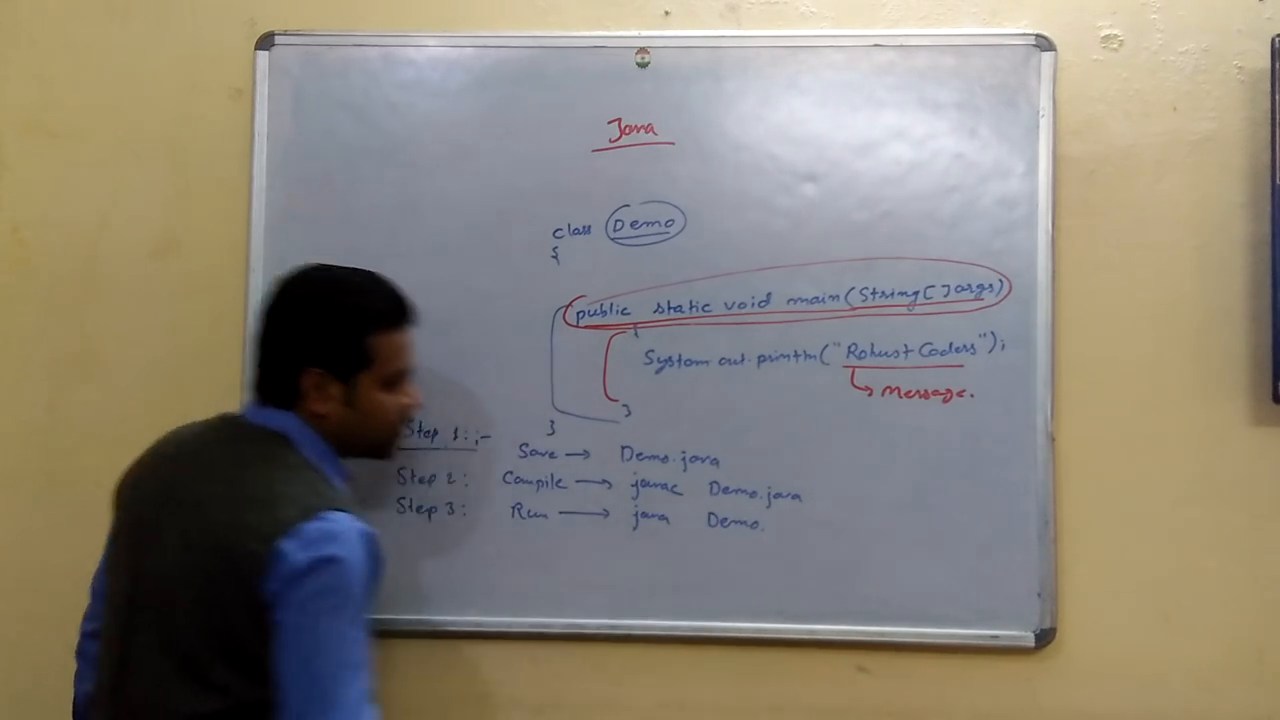 Java
class Demo
{
public static void main(String[]args)
{
System.out.println("Robust Coders");
Message.
}
}
Step 1:-
Save → Demo.java
Step 2: Compile → javac Demo.java
Step 3: Run → java Demo.